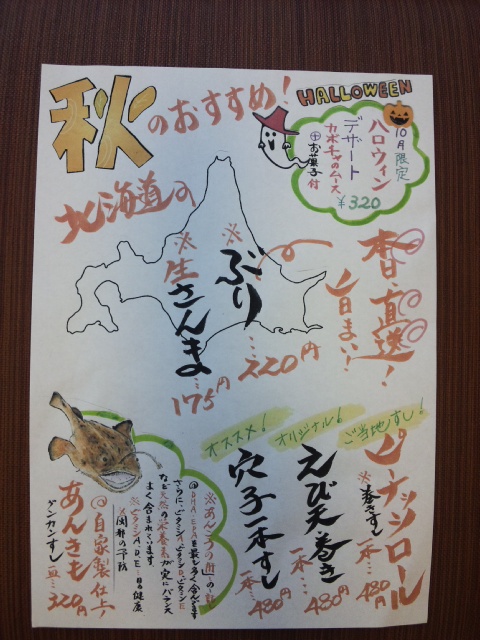 秋のおすすめ!
HALLOWEEN
10月限定
ハロウィン
デザート
カボチャのムース
⊕お菓子付
¥320
本日、直送!
旨まい!
北海道の
※ぶり…220円
※生さんま…175円
ご当地すし!
ピーナッツロール
※巻きすし
一本…480円
オリジナル!
えび天巻き
一本…480円
オススメ!
穴子一本すし
一本…480円
◎DHA・EPAを最も多く含んでます
さらに、ビタミンA、ビタミンD、ビタミンE
など天然の栄養素が実にバランス
よく含まれています
◎自家製仕上!
あんきも
グンカンすし一皿…320円